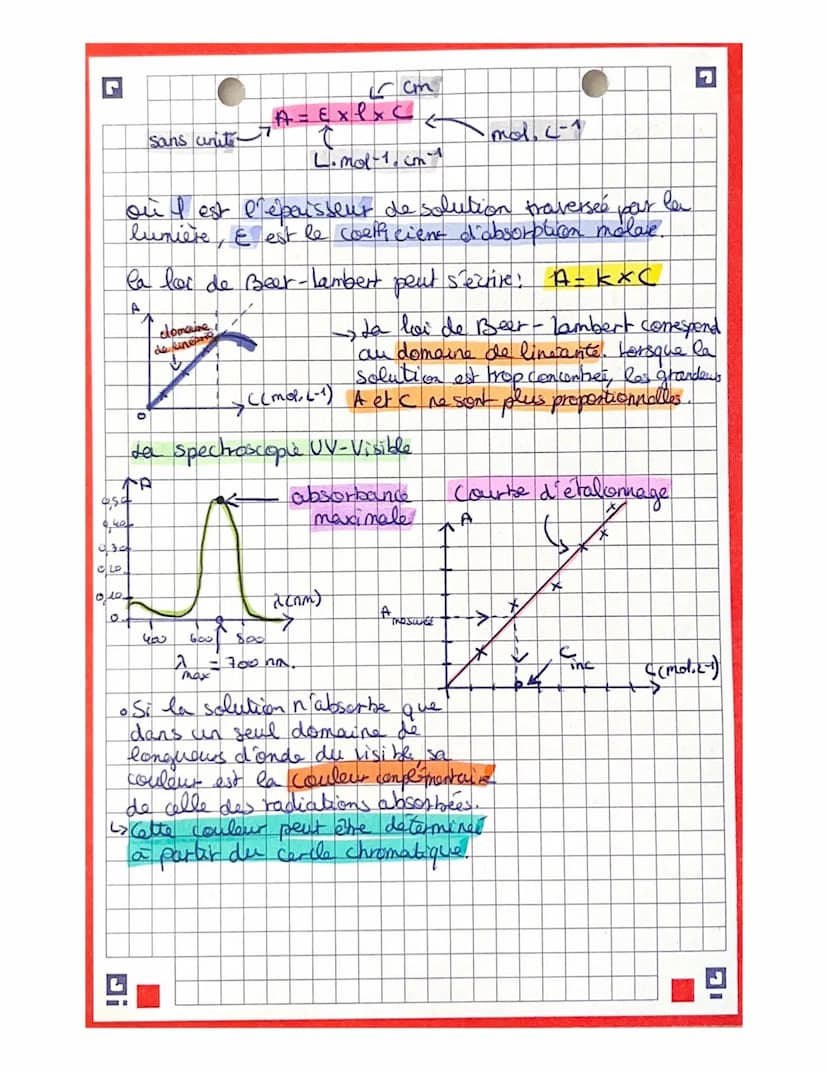 cm
A = ε x l x C
sans unité
mol. L-1
L. mol-1. cm-1
où l est l'épaisseur de solution traversée par la
lumière, ε est le coefficient d'absorption molaire.
La loi de Beer-Lambert peut s'écrire: A = k x C
A
domaine
de linéarité
0
C(mol.L-1)
→ La loi de Beer-Lambert correspond
au domaine de linéarité. Lorsque la
solution est trop concentrée, les grandeurs
A et C ne sont plus proportionnelles.
La spectroscopie UV-Visible
A
0,50
0,40
0,30
0,20
0,10
0
400 600 800
λ(nm)
λmax = 700 nm.
absorbance
maximale
Courbe d'étalonnage
A
A mesurée
C inc
C(mol.L-1)
• Si la solution n'absorbe que
dans un seul domaine de
longueurs d'onde du visible, sa
couleur est la couleur complémentaire
de celle des radiations absorbées.
↳ Cette couleur peut être déterminée
à partir du cercle chromatique.